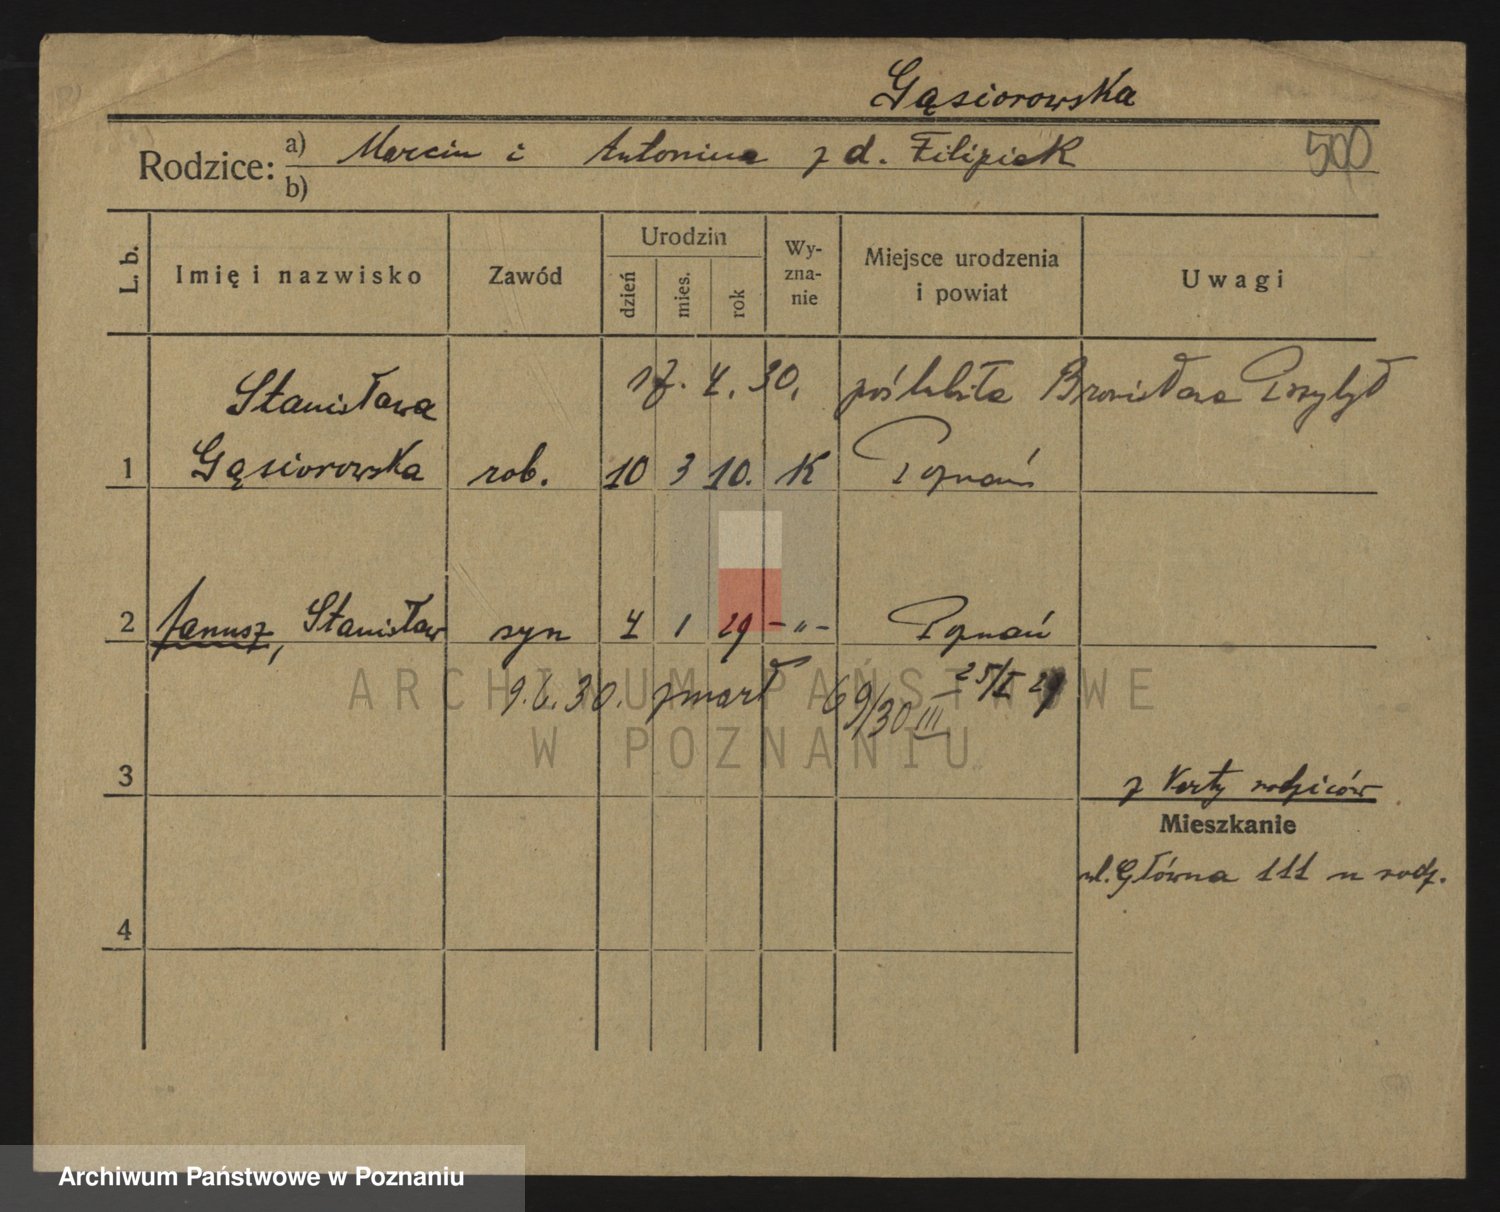 Gąsiorowska
Rodzice: a) Marcin i Antonina z d. Filipiak
500
b)
L. b. Imię i nazwisko Zawód Urodzin dzień mies. rok Wy-zna-nie Miejsce urodzenia i powiat Uwagi
17. 4. 30. poślubiła Bronisława Przybył
Stanisława
1 Gąsiorowska rob. 10 3 10. K Poznań
2 Janusz, Stanisław syn 4 1 29 -"- Poznań
9. 6. 30. zmarł 69/30 III 25/I 29
ARCHIWUM PAŃSTWOWE
W POZNANIU
3
z karty rodziców
Mieszkanie
ul. Główna 111 u rodz.
4
Archiwum Państwowe w Poznaniu